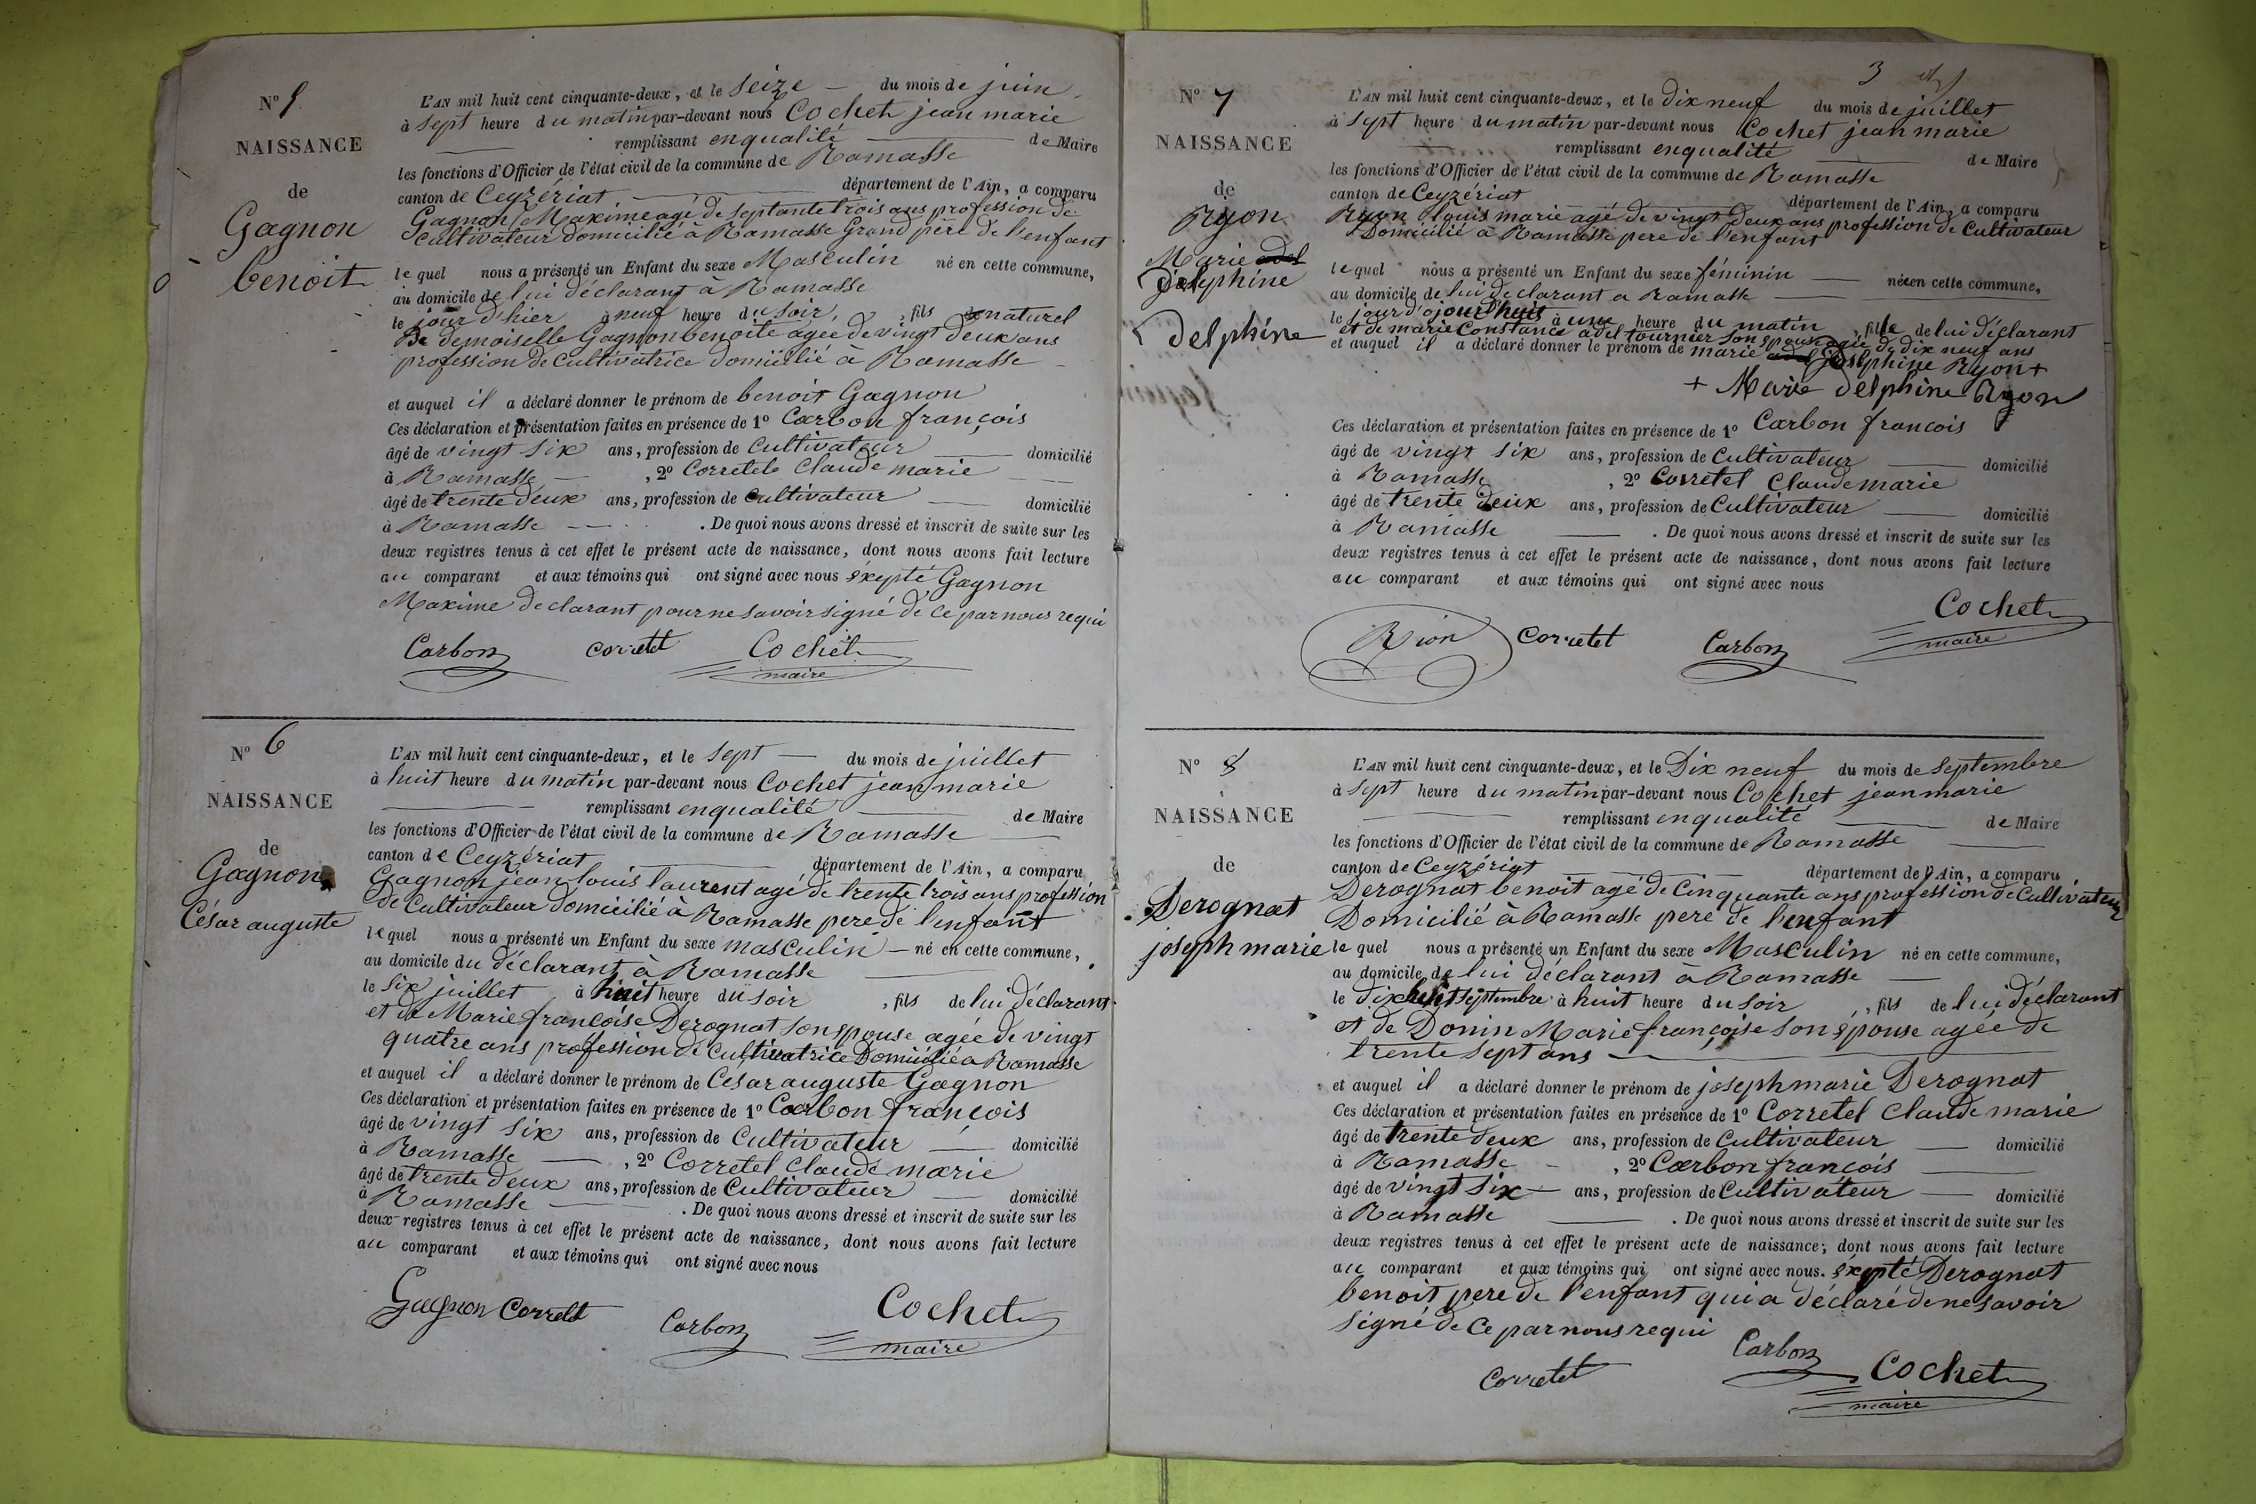 Nº 5
NAISSANCE
de
Gagnon
benoit
L'AN mil huit cent cinquante-deux, et le seize du mois de juin
à sept heure du matin par-devant nous Cochet jean marie
remplissant enqualité de Maire
les fonctions d'Officier de l'état civil de la commune de Ramasse
canton de Ceyzériat département de l'Ain, a comparu
Gagnon Maxime agé de septante trois ans profession de
Cultivateur domicilié à Ramasse Grand père de l'enfant
lequel nous a présenté un Enfant du sexe Masculin né en cette commune,
au domicile de lui déclarant à Ramasse
le jour d'hier à neuf heure du soir, fils naturel
De demoiselle Gagnon benoite agée de vingt deux ans
profession de Cultivatrice domicilié a Ramasse
et auquel il a déclaré donner le prénom de benoit Gagnon
Ces déclaration et présentation faites en présence de 1º Carbon françois
âgé de vingt six ans, profession de Cultivateur domicilié
à Ramasse, 2º Corretel Claude marie
âgé de trente deux ans, profession de Cultivateur domicilié
à Ramasse. De quoi nous avons dressé et inscrit de suite sur les
deux registres tenus à cet effet le présent acte de naissance, dont nous avons fait lecture
au comparant et aux témoins qui ont signé avec nous éxepté Gagnon
Maxime declarant pour ne savoir signé de ce par nous requi
Carbon Corretet Cochet
maire
Nº 6
NAISSANCE
de
Gagnon
César auguste
L'AN mil huit cent cinquante-deux, et le sept du mois de juillet
à huit heure du matin par-devant nous Cochet jean marie
remplissant enqualité de Maire
les fonctions d'Officier de l'état civil de la commune de Ramasse
canton de Ceyzériat département de l'Ain, a comparu
Gagnon jean louis laurent agé de trente trois ans profession
de Cultivateur domicilié à Ramasse pere de l'enfant
lequel nous a présenté un Enfant du sexe masculin né en cette commune,
au domicile du déclarant à Ramasse
le six juillet à huit heure du soir, fils de lui déclarant
et de Marie françoise Derognat son épouse agée de vingt
quatre ans profession de Cultivatrice Domicilié a Ramasse
et auquel il a déclaré donner le prénom de César auguste Gagnon
Ces déclaration et présentation faites en présence de 1º Carbon françois
âgé de vingt six ans, profession de Cultivateur domicilié
à Ramasse, 2º Corretel Claude marie
âgé de trente deux ans, profession de Cultivateur domicilié
à Ramasse. De quoi nous avons dressé et inscrit de suite sur les
deux registres tenus à cet effet le présent acte de naissance, dont nous avons fait lecture
au comparant et aux témoins qui ont signé avec nous
Gagnon Corretet Carbon Cochet
maire
3
Nº 7
NAISSANCE
de
Ryon
Marie adel
Delphine
delphine
L'AN mil huit cent cinquante-deux, et le dix neuf du mois de juillet
à sept heure du matin par-devant nous Cochet jean marie
remplissant enqualité de Maire
les fonctions d'Officier de l'état civil de la commune de Ramasse
canton de Ceyzériat département de l'Ain, a comparu
Ryon louis marie agé de vingt deux ans profession de Cultivateur
Domicilié à Ramasse pere de l'enfant
lequel nous a présenté un Enfant du sexe féminin née en cette commune,
au domicile de lui declarant a Ramasse
le jour d'ojourd'huit à une heure du matin, fille de lui déclarant
et de marie Constance adel tournier son epouse agée de dix neuf ans
et auquel il a déclaré donner le prénom de marie adel delphine Ryon +
+ Marie delphine Ryon
Ces déclaration et présentation faites en présence de 1º Carbon francois
âgé de vingt six ans, profession de Cultivateur domicilié
à Ramasse, 2º Corretel Claude marie
âgé de trente deux ans, profession de Cultivateur domicilié
à Ramasse. De quoi nous avons dressé et inscrit de suite sur les
deux registres tenus à cet effet le présent acte de naissance, dont nous avons fait lecture
au comparant et aux témoins qui ont signé avec nous
Rion Corretet Carbon Cochet
maire
Nº 8
NAISSANCE
de
Derognat
joseph marie
L'AN mil huit cent cinquante-deux, et le Dix neuf du mois de septembre
à sept heure du matin par-devant nous Cochet jean marie
remplissant enqualité de Maire
les fonctions d'Officier de l'état civil de la commune de Ramasse
canton de Ceyzériat département de l'Ain, a comparu
Derognat benoit agé de Cinquante ans profession de Cultivateur
Domicilié à Ramasse pere de l'enfant
lequel nous a présenté un Enfant du sexe Masculin né en cette commune,
au domicile de lui déclarant à Ramasse
le dixhuit septembre à huit heure du soir, fils de lui déclarant
et de Donin Marie françoise son épouse agée de
trente sept ans
et auquel il a déclaré donner le prénom de joseph marie Derognat
Ces déclaration et présentation faites en présence de 1º Corretel Claude marie
âgé de trente deux ans, profession de Cultivateur domicilié
à Ramasse, 2º Carbon françois
âgé de vingt six ans, profession de Cultivateur domicilié
à Ramasse. De quoi nous avons dressé et inscrit de suite sur les
deux registres tenus à cet effet le présent acte de naissance; dont nous avons fait lecture
au comparant et aux témoins qui ont signé avec nous. éxepté Derognat
benoit pere de l'enfant qui a déclaré de ne savoir
signé de ce par nous requi
Corretet Carbon Cochet
maire